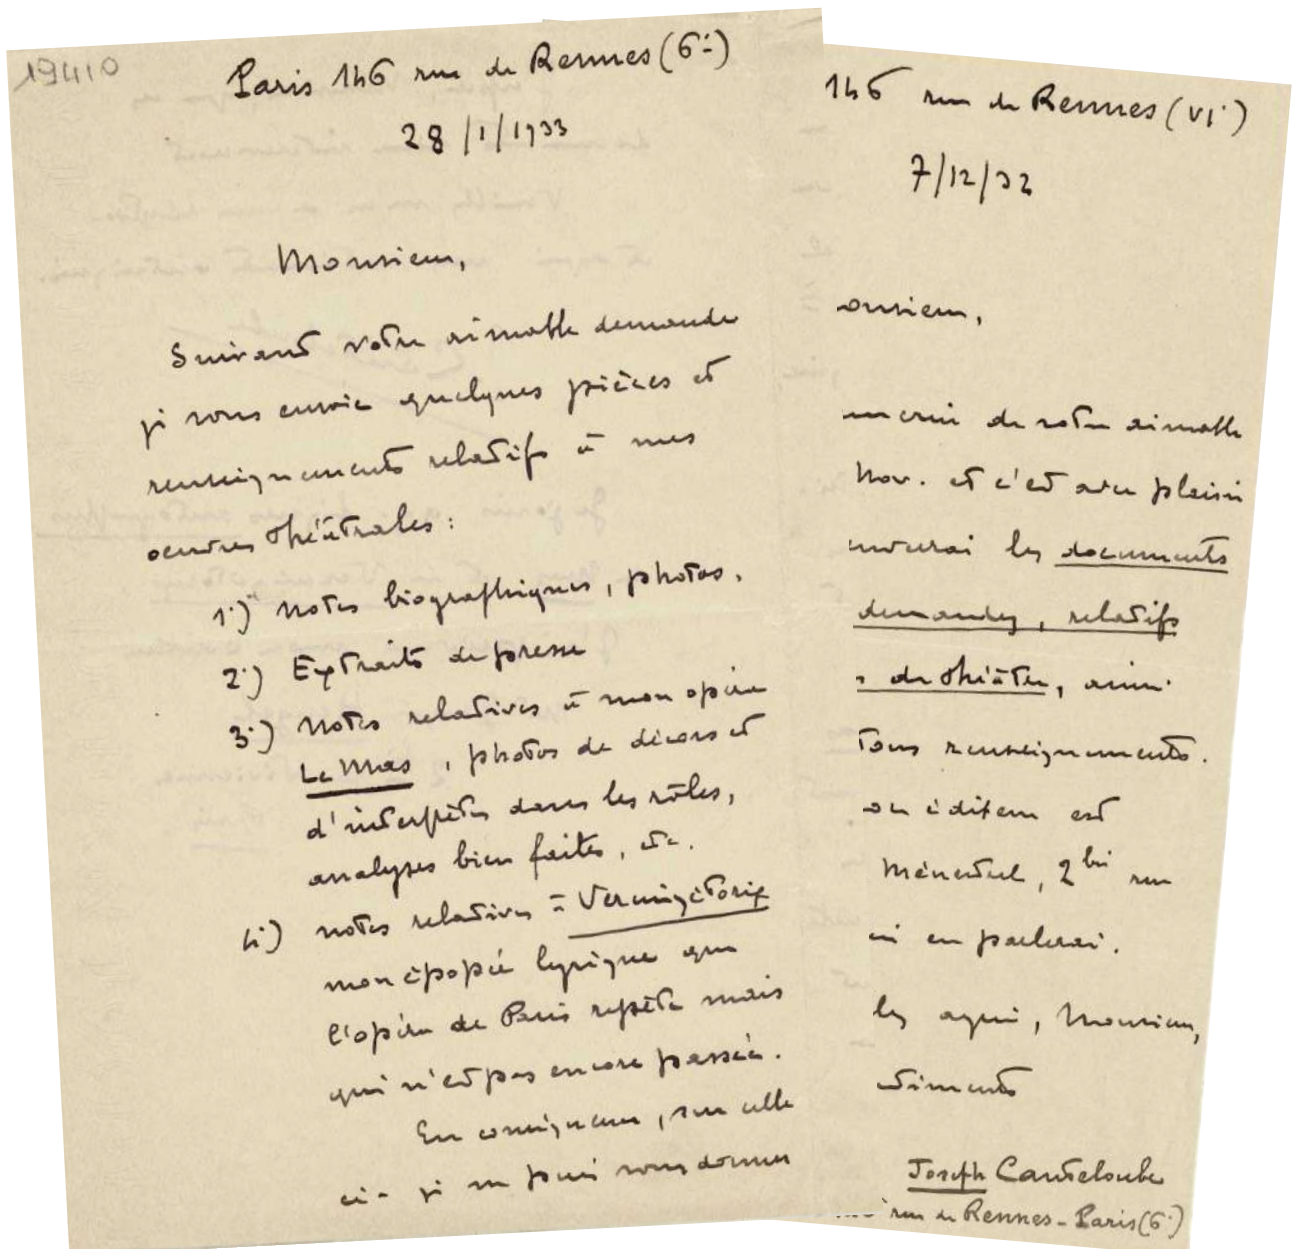 19410
Paris 146 rue de Rennes (6e)
28/1/1933
Monsieur,
Suivant votre aimable demande
je vous envoie quelques pièces et
renseignements relatifs à mes
oeuvres théâtrales :
1°) Notes biographiques, photos.
2°) Extraits de presse
3°) Notes relatives à mon opéra
Le Mas, photos de décors et
d'interprètes dans les rôles,
analyses bien faites, etc.
4°) notes relatives à Vercingétorix
mon épopée lyrique que
l'opéra de Paris répète mais
qui n'est pas encore passée.
En conséquence, sur celle
ci - je ne puis vous donner
146 rue de Rennes (VIe)
7/12/32
onsieur,
merci de votre aimable
Nov. et c'est avec plaisir
enverrai les documents
demandés, relatifs
de théâtre, ainsi
tous renseignements.
on éditeur est
Ménestrel, 2bis rue
en parlerai.
agréer, Monsieur,
timents
Joseph Canteloube
rue de Rennes - Paris (6e)